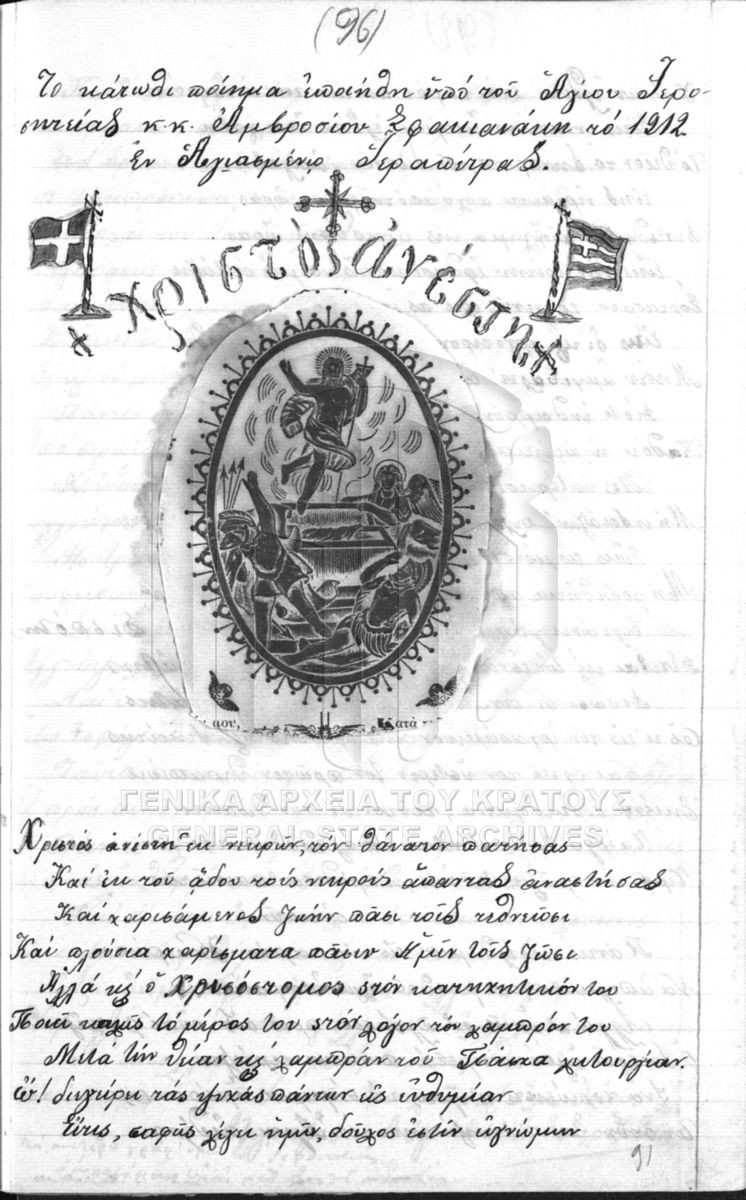 (96)
Το κάτωθι ποίημα ἐποιήθη ὑπό τοῦ Ἁγίου Ἱερο-
σητείας κ.κ. Ἀμβροσίου Σφακιανάκη τό 1912
Ἐν Ἁγιασμένῳ Ἱεραπέτρας.
χριστὸς ἀνέστη
μου, Κατὰ
ΓΕΝΙΚΑ ΑΡΧΕΙΑ ΤΟΥ ΚΡΑΤΟΥΣ
GENERAL STATE ARCHIVES
Χριστός ἀνέστη ἐκ νεκρῶν, τόν θάνατον πατήσας
Καί ἐκ τοῦ ᾅδου τούς νεκρούς ἅπαντας ἀναστήσας
Καί χαρισάμενος ζωήν πᾶσι τοῖς τεθνεῶσι
Καί πλούσια χαρίσματα πᾶσιν ἡμῖν τοῖς ζῶσι
Ἀλλά κι' ὁ Χρυσόστομος στόν κατηχητικόν του
Ποιεῖ καλῶς τό μέρος του στόν λόγον τόν λαμπρόν του
Μετα τήν θείαν κι' λαμπράν τοῦ Πάσχα λειτουργίαν.
ὤ! διεγείρει τάς ψυχάς πάντων εἰς εὐθυμίαν
Εἴτις, σαφῶς λέγει ἡμῖν, δοῦλος ἐστίν εὐγνώμων
91